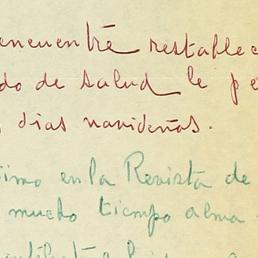 encuentre restablec
do de salud le pe
, dias navideñas.
simo en la Revista de
mucho tiempo alma